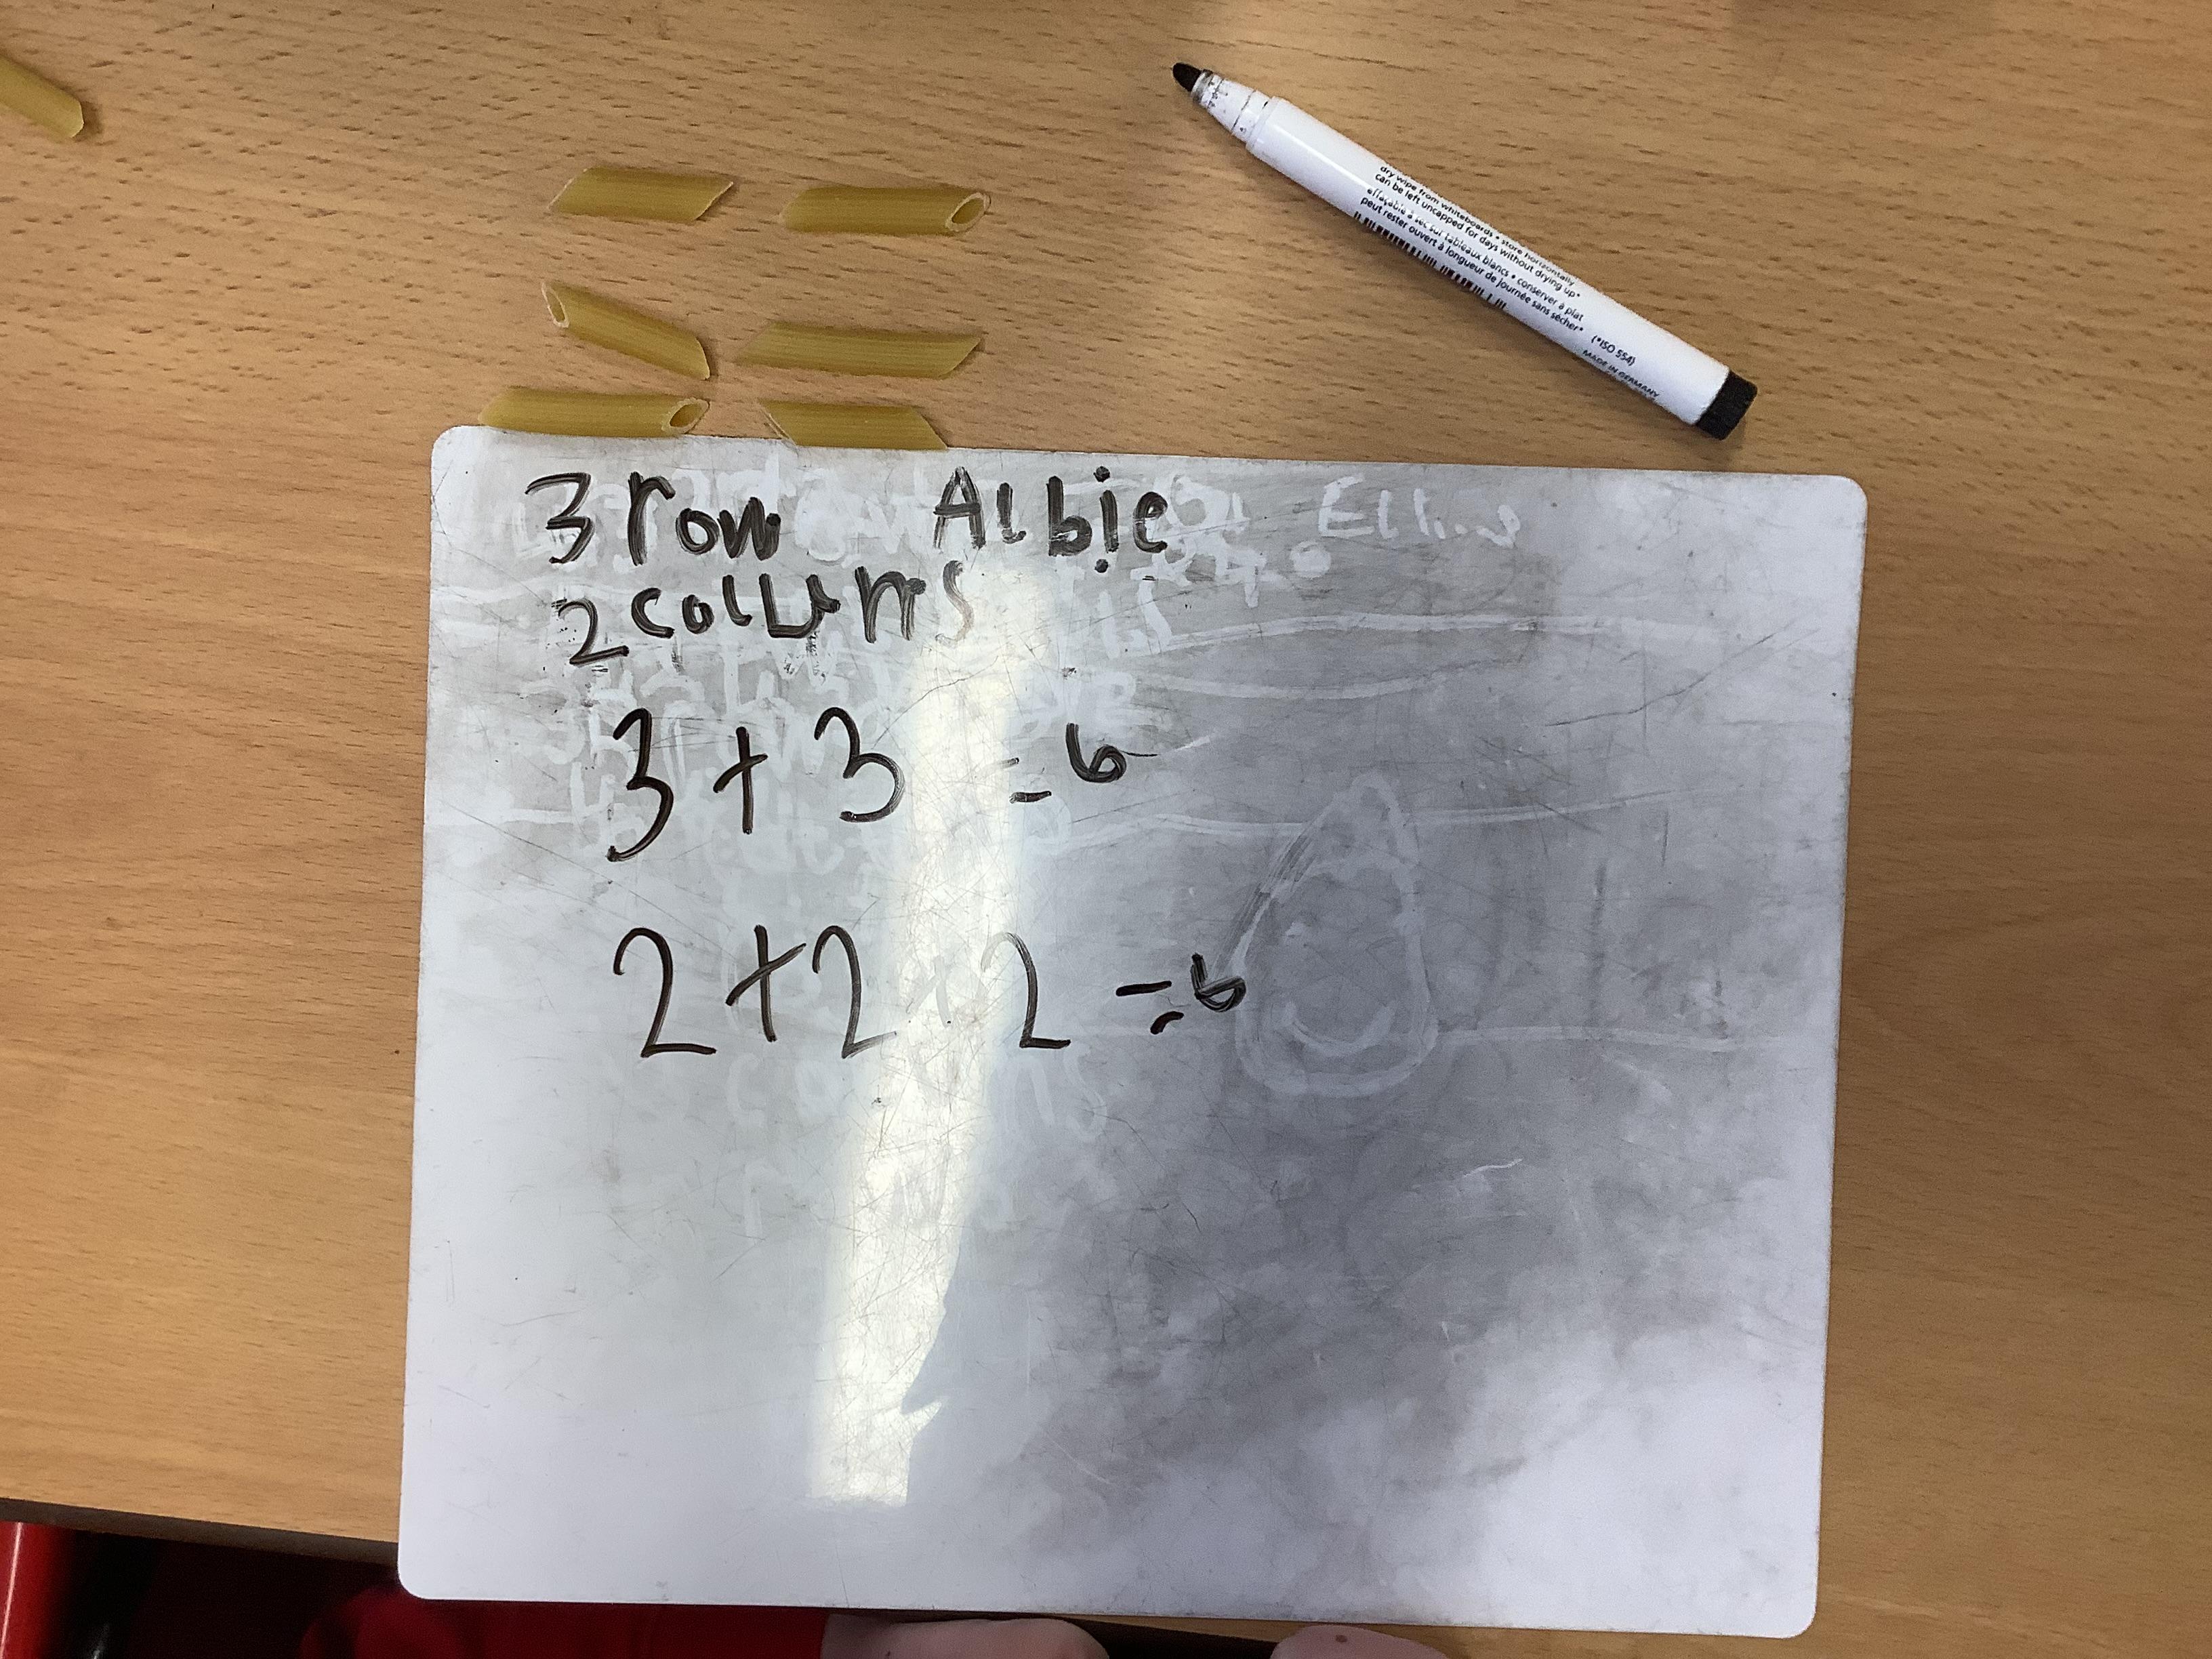 dry wipe from whiteboards • store horizontally
can be left uncapped for days without drying up*
effaçable à sec sur tableaux blancs • conserver à plat
peut rester ouvert à longueur de journée sans sécher*
(*ISO 554)
MADE IN GERMANY
3 row Albie
2 collums
3 + 3 = 6
2 + 2 + 2 = 6